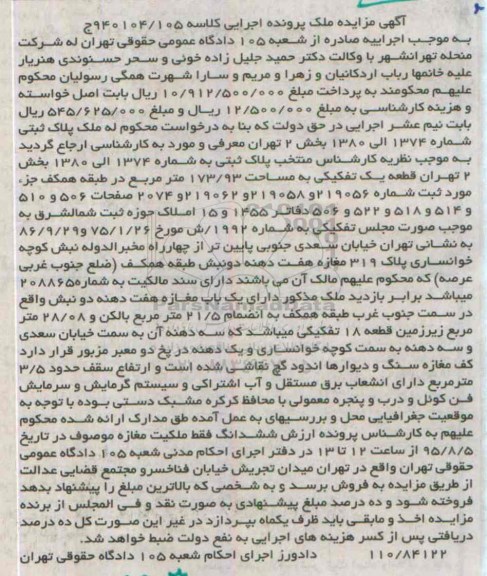 آگهی مزایده ملک پرونده اجرایی کلاسه ۹۴۰۱۰۴/۱۰۵ج
به موجب اجراییه صادره از شعبه ۱۰۵ دادگاه عمومی حقوقی تهران له شرکت
منحله تهرانشهر با وکالت دکتر حمید جلیل زاده خوئی و سحر حسنوندی هنریار
علیه خانمها رباب اردکانیان و زهرا و مریم و سارا شهرت همگی رسولیان محکوم
علیهم محکومند به پرداخت مبلغ ۱۰/۹۱۲/۵۰۰/۰۰۰ ریال بابت اصل خواسته
و هزینه کارشناسی به مبلغ ۱۲/۵۰۰/۰۰۰ ریال و مبلغ ۵۴۵/۶۲۵/۰۰۰ ریال
بابت نیم عشر اجرایی در حق دولت که بنا به درخواست محکوم له ملک پلاک ثبتی
شماره ۱۳۷۴ الی ۱۳۸۰ بخش ۲ تهران معرفی و مورد به کارشناسی ارجاع گردید
به موجب نظریه کارشناس منتخب پلاک ثبتی به شماره ۱۳۷۴ الی ۱۳۸۰ بخش
۲ تهران قطعه یک تفکیکی به مساحت ۱۷۳/۹۳ متر مربع در طبقه همکف جزء
مورد ثبت شماره ۲۱۹۰۵۶ و ۲۱۹۰۵۸ و ۲۱۹۰۶۲ و ۲۰۷۴ صفحات ۵۰۶ و ۵۱۰
و ۵۱۴ و ۵۱۸ و ۵۲۲ و ۵۰۶ دفاتر ۱۴۵۵ و ۱۵ املاک حوزه ثبت شمالشرق به
موجب صورت مجلس تفکیکی به شماره ۱۹۹۲/ش مورخ ۷۵/۱/۲۶ و ۸۶/۹/۲۹
به نشانی تهران خیابان سعدی جنوبی پایین تر از چهارراه مخبرالدوله نبش کوچه
خوانساری پلاک ۳۱۹ مغازه هفت دهنه دونبش طبقه همکف (ضلع جنوب غربی
عرصه) که محکوم علیهم مالک آن می باشند دارای سند مالکیت به شماره ۲۰۸۸۶۵
میباشد برابر بازدید ملک مذکور دارای یک باب مغازه هفت دهنه دو نبش واقع
در سمت جنوب غرب طبقه همکف به انضمام ۲۱/۵ متر مربع بالکن و ۲۸/۰۸ متر
مربع زیرزمین قطعه ۱۸ تفکیکی میباشد که سه دهنه آن به سمت خیابان سعدی
و سه دهنه به سمت کوچه خوانساری و یک دهنه در پخ دو معبر مزبور قرار دارد
کف مغازه سنگ و دیوارها اندود گچ نقاشی شده است و ارتفاع سقف حدود ۳/۵
مترمربع دارای انشعاب برق مستقل و آب اشتراکی و سیستم گرمایش و سرمایش
فن کوئل و درب و پنجره معمولی با محافظ کرکره مشبک دستی بوده با توجه به
موقعیت جغرافیایی محل و بررسیهای به عمل آمده طق مدارک ارائه شده محکوم
علیهم به کارشناس پرونده ارزش ششدانگ فقط ملکیت مغازه موصوف در تاریخ
۹۵/۸/۵ از ساعت ۱۲ تا ۱۳ در دفتر اجرای احکام مدنی شعبه ۱۰۵ دادگاه عمومی
حقوقی تهران واقع در تهران میدان تجریش خیابان فناخسرو مجتمع قضایی عدالت
از طریق مزایده به فروش برسد و به شخصی که بالاترین مبلغ را پیشنهاد بدهد
فروخته شود و ده درصد مبلغ پیشنهادی به صورت نقد و فی المجلس از برنده
مزایده اخذ و مابقی باید ظرف یکماه بپردازد در غیر این صورت کل ده درصد
دریافتی پس از کسر هزینه های اجرایی به نفع دولت ضبط خواهد شد.
۱۱۰/۸۴۱۲۲ دادورز اجرای احکام شعبه ۱۰۵ دادگاه حقوقی تهران